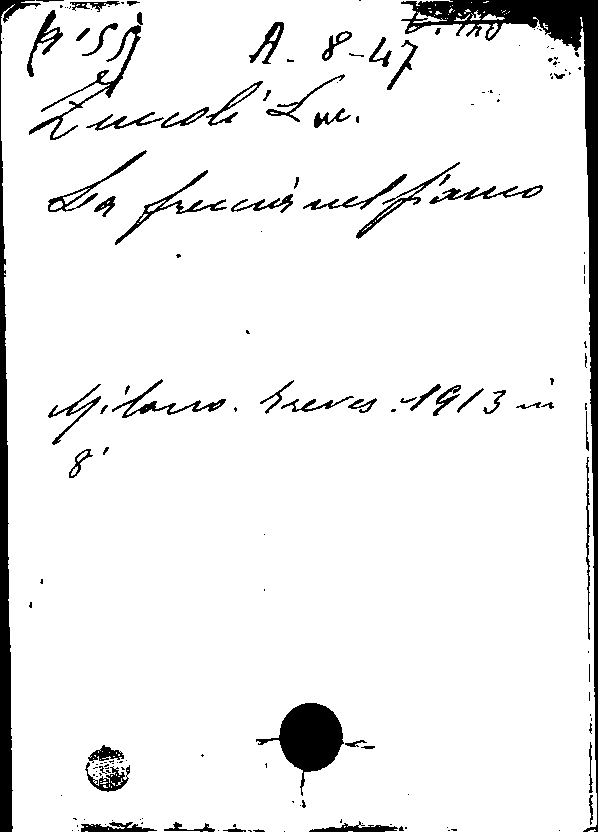 A-8-47
Zuccoli Luc.
La freccia nel fianco
Milano. Treves. 1913 in
8°